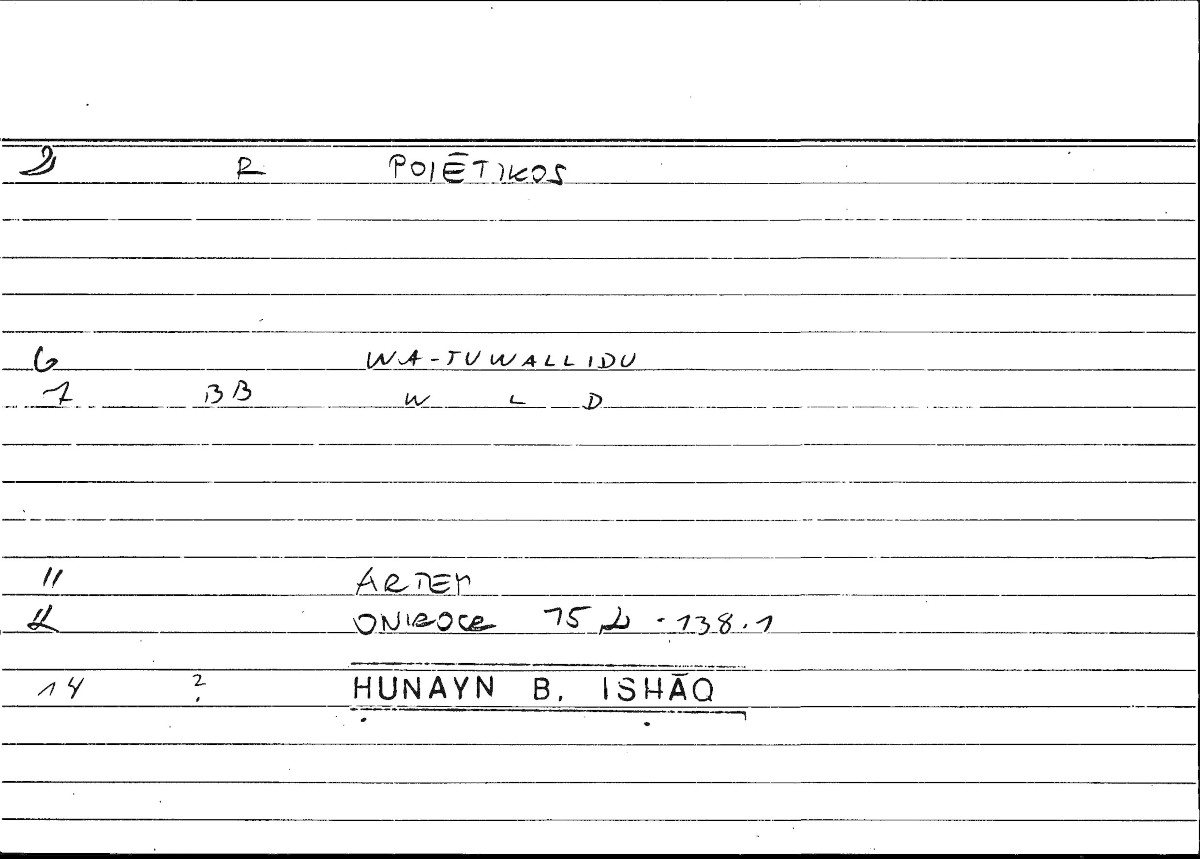 2 R POIĒTIKOS
6 WA-TUWALLIDU
7 BB W L D
11 ARTEM
12 ONIROCR 15 - 138.1
14 ? ḤUNAYN B. ISḤĀQ